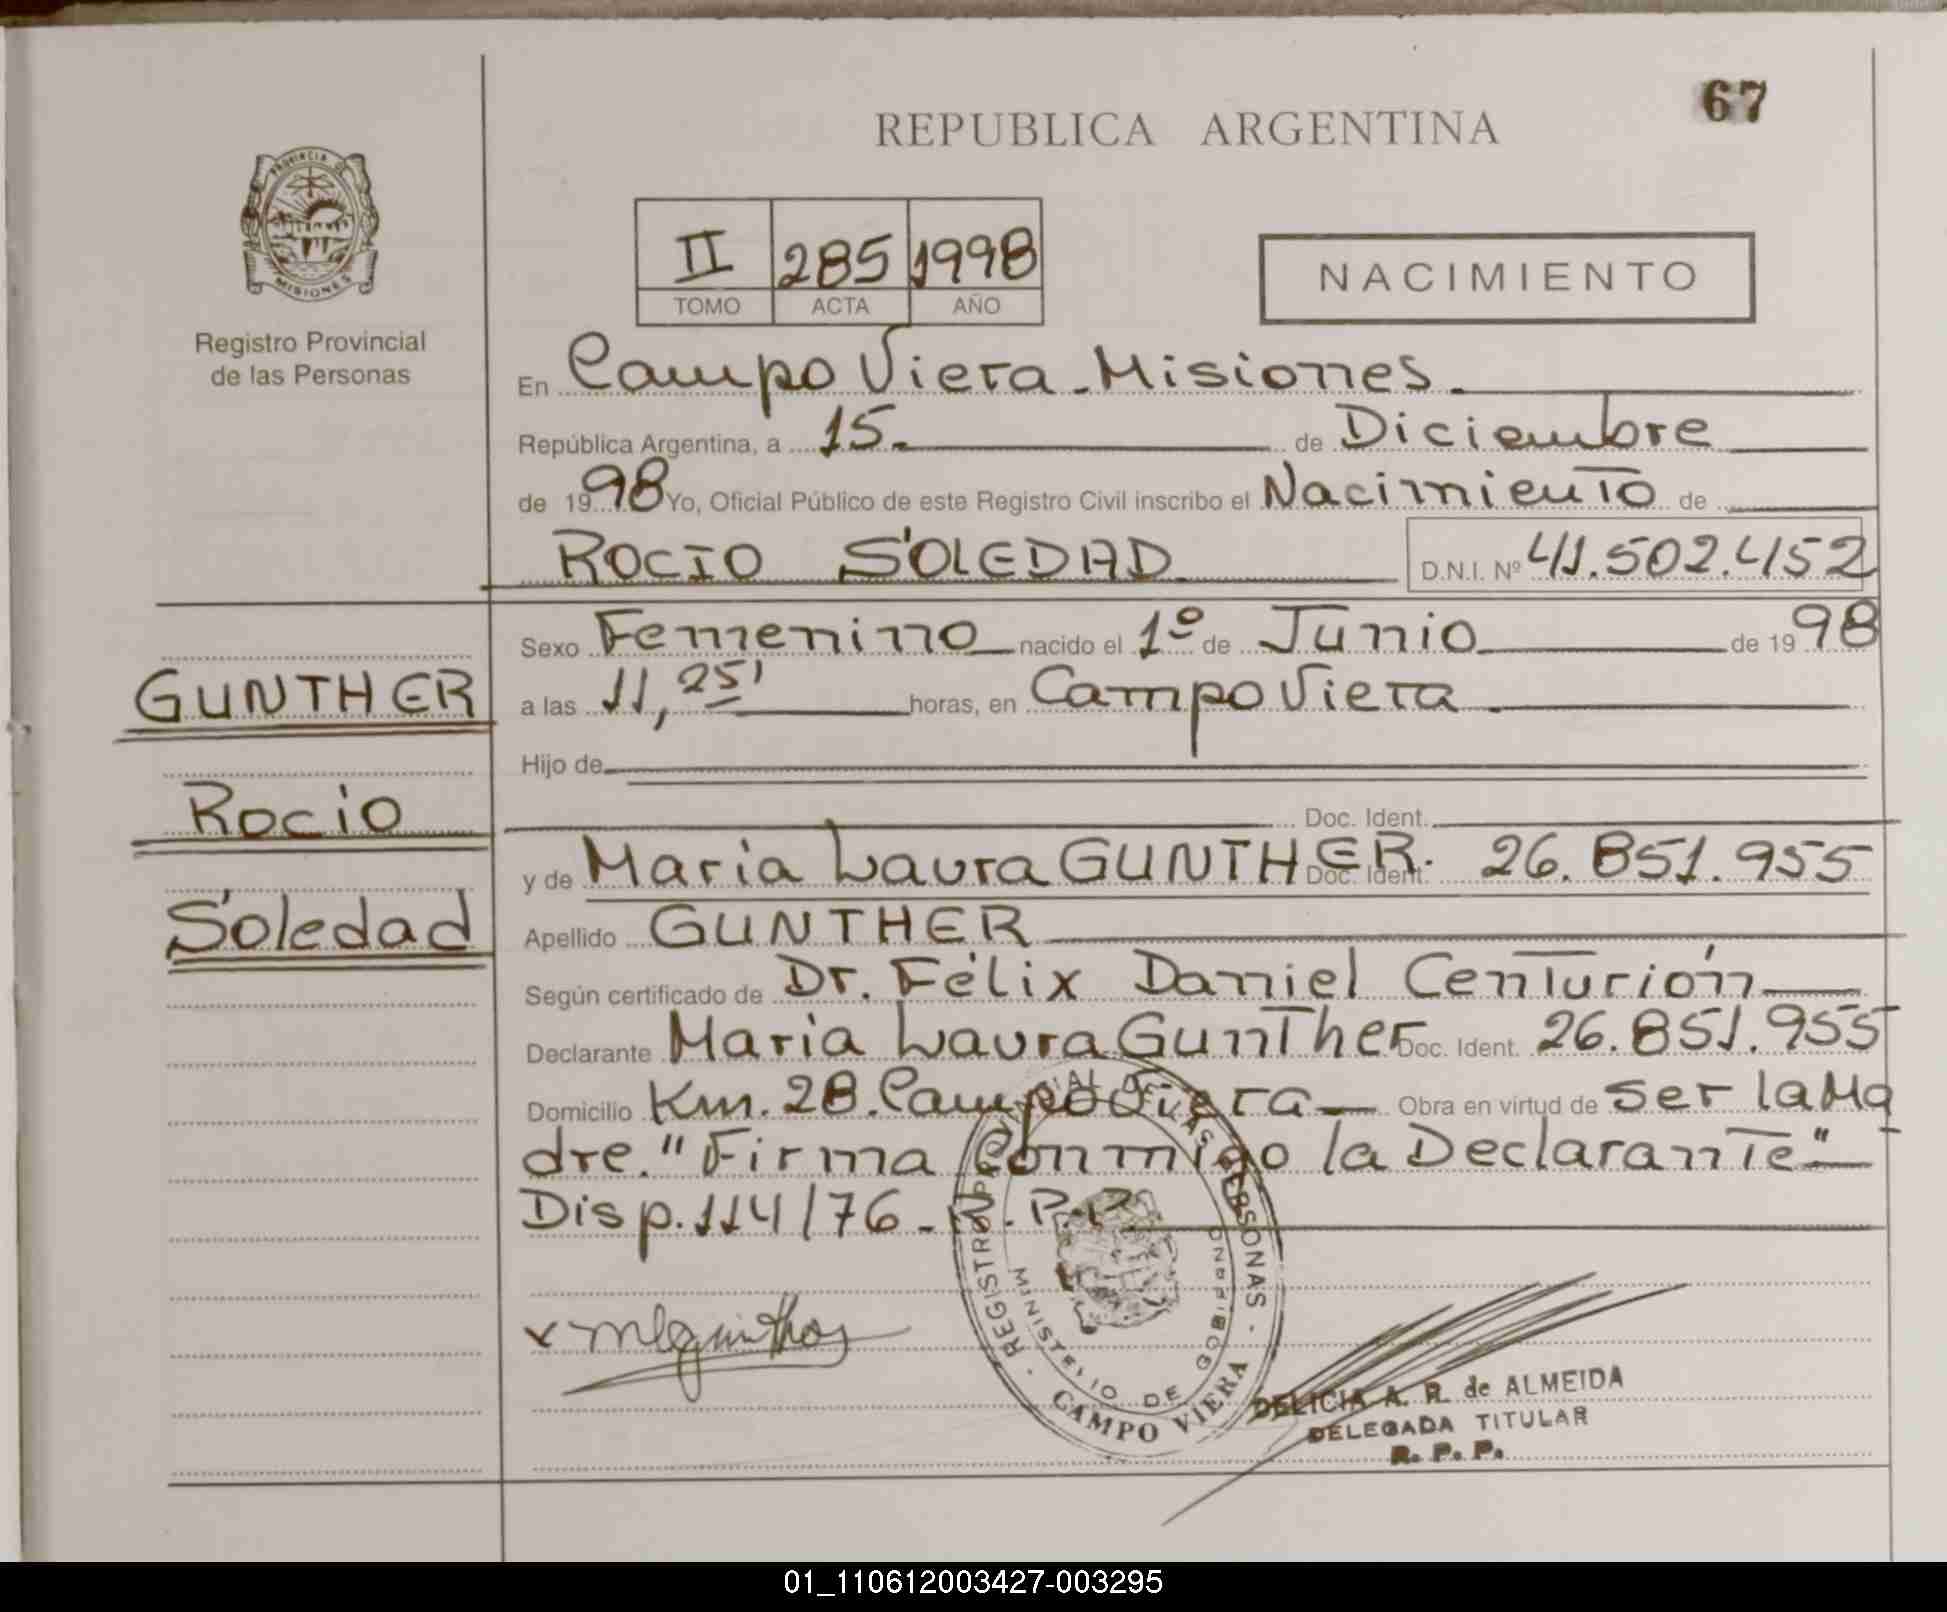 67
REPUBLICA ARGENTINA
PROVINCIA DE
MISIONES
Registro Provincial
de las Personas
II 285 1998
TOMO ACTA AÑO
NACIMIENTO
En Campo Viera - Misiones.
República Argentina, a 15. de Diciembre
de 1998 Yo, Oficial Público de este Registro Civil inscribo el Nacimiento de
ROCIO SOLEDAD D.N.I. Nº 41.502.452
Sexo Femenino nacido el 1º de Junio de 1998
a las 11,25' horas, en Campo Viera.
Hijo de
Doc. Ident.
y de Maria Laura GUNTHER. Doc. Ident. 26.851.955
Apellido GUNTHER
Según certificado de Dr. Félix Daniel Centurión
Declarante Maria Laura Gunther Doc. Ident. 26.851.955
Domicilio Km. 28. Campo Viera Obra en virtud de ser la Ma
dre. "Firma Conmigo la Declarante"
Disp. 114/76 - R.P.P.
GUNTHER
Rocio
Soledad
REGISTRO PROVINCIAL DE LAS PERSONAS
MINISTERIO DE GOBIERNO
CAMPO VIERA
DELICIA A. R. de ALMEIDA
DELEGADA TITULAR
R. P. P.
01_110612003427-003295